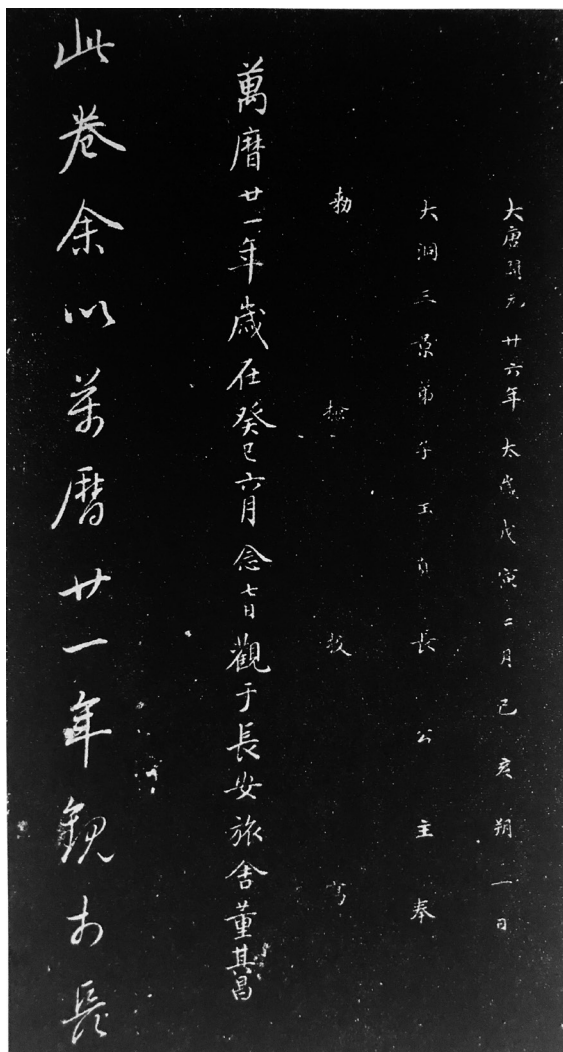 大唐開元廿六年大歲戊寅二月己亥朔二日
大洞三景弟子玉真長公主奉
勅檢校寫
萬曆廿一年歲在癸巳六月念七日觀于長安旅舍董其昌
此卷余以萬曆廿一年觀於長